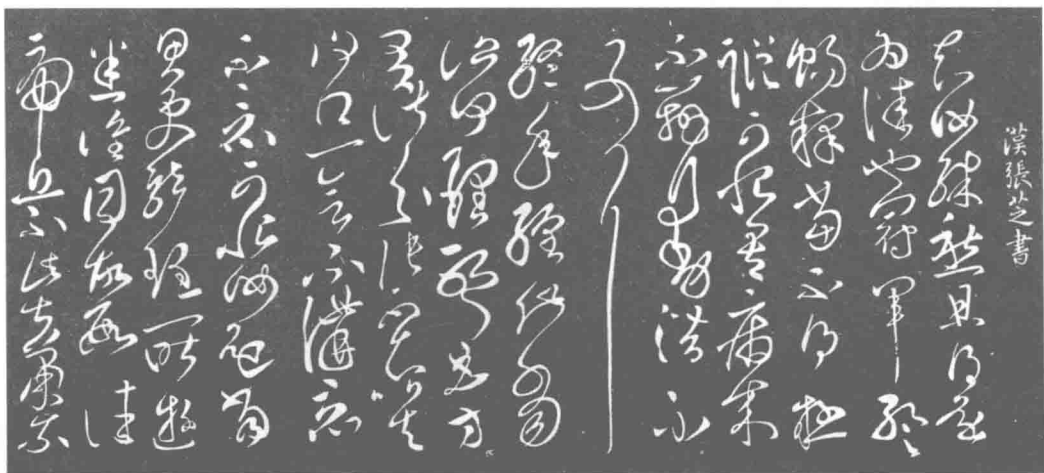 漢張芝書
知汝殊愁且得還
為佳也冠軍暫
暢釋當不得極
蹤可恨吾病來
不辦行動潛不
可耳
終年纏此當
復何理耶且方
有諸分張不知比去
復得一會不講竟
不竟可恨汝還當
思更就理一昨遊
悉誰同故數往
虎丘不此甚蕭索